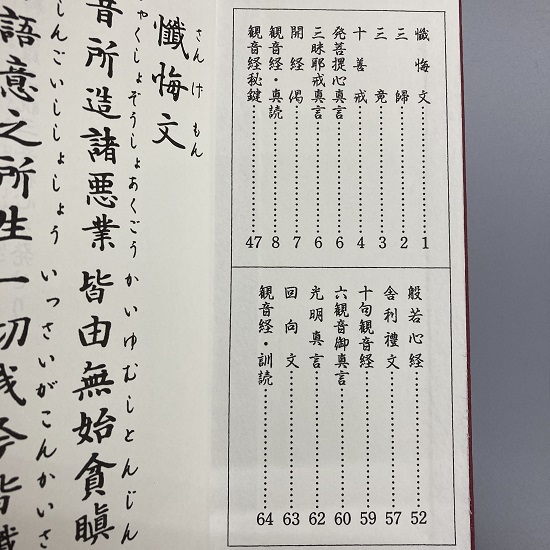 懺悔文……1
三歸……2
三竟……3
十善戒……4
発菩提心真言……6
三昧耶戒真言……6
開経偈……7
観音経・真読……8
観音経秘鍵……47
般若心経……52
舎利禮文……57
十句観音経……59
六観音御真言……60
光明真言……62
回向文……63
観音経・訓読……64
さんけもん
懺悔文
ゃくしょぞうしょあくごう かいゆむしとんじん
昔所造諸悪業 皆由無始貪瞋
しんごいししょしょう いっさいがこんかいさ
語意之所生 一切我今皆